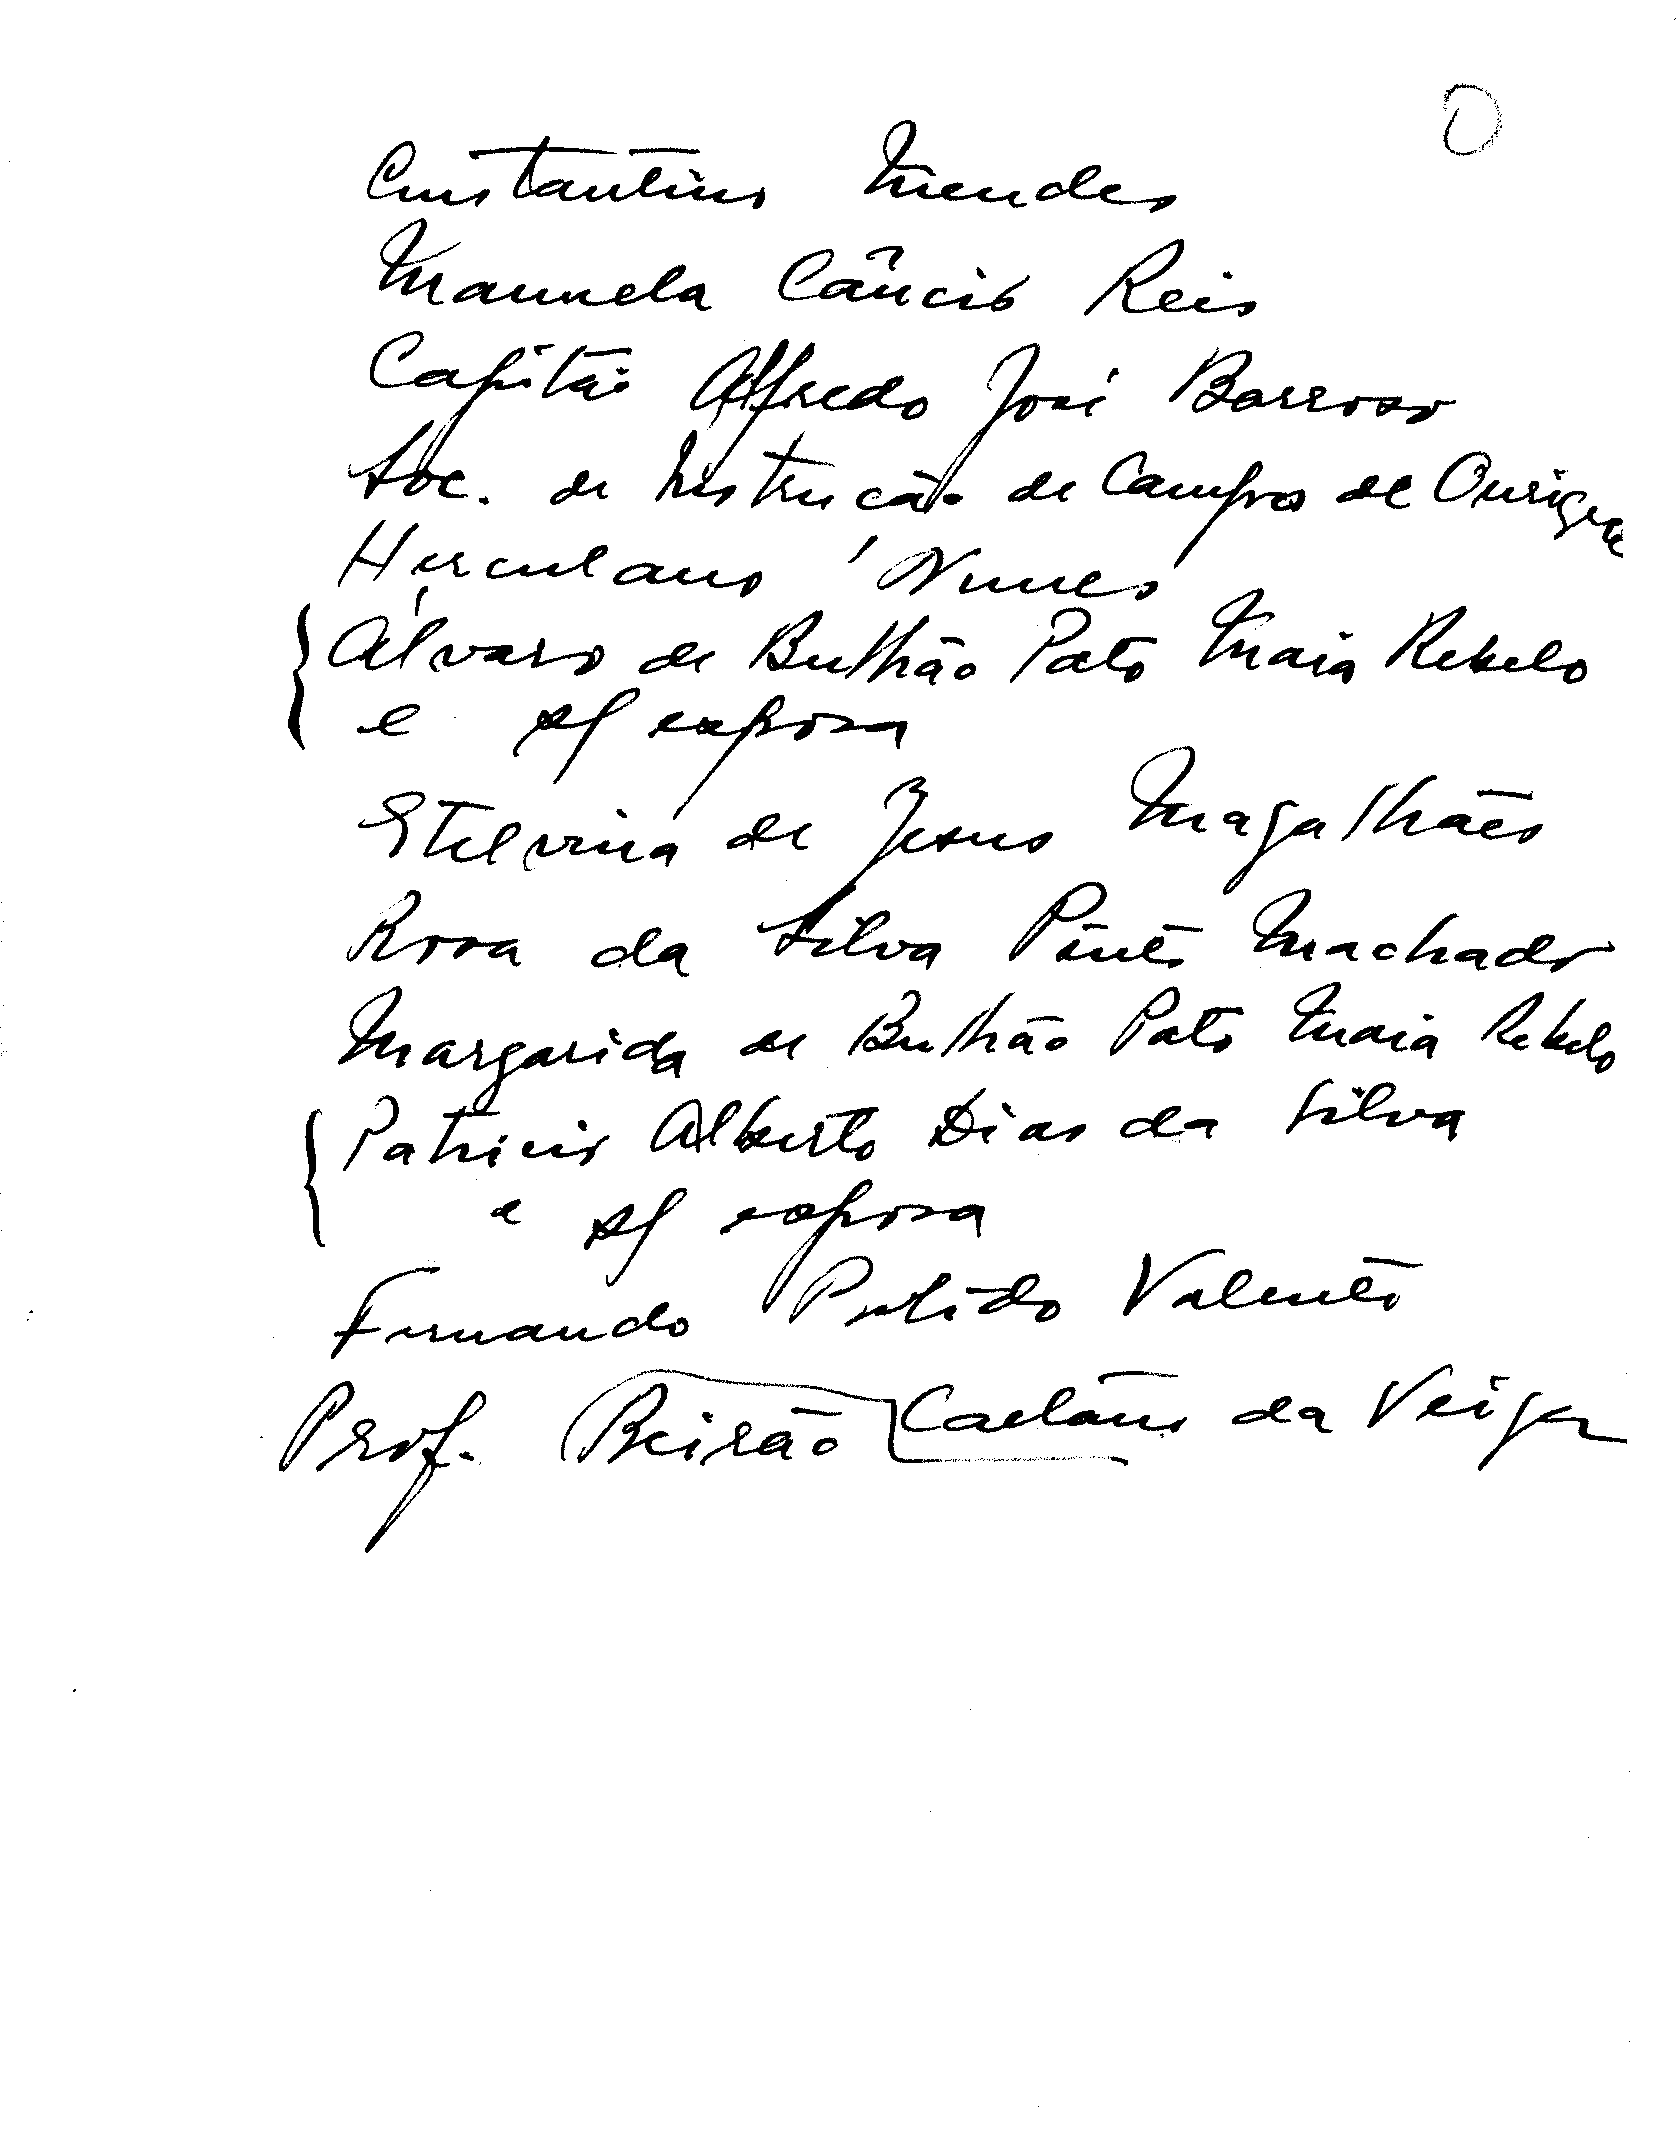 Constantino Mendes
Manuela Câncio Reis
Capitão Alfredo José Barroso
Soc. de Instrução de Campos de Ourique
Herculano Nunes
Álvaro de Bulhão Pato Maia Rebelo
e s/ esposa
Etelvina de Jesus Magalhães
Rosa da Silva Pinto Machado
Margarida de Bulhão Pato Maia Rebelo
Patricio Alberto Dias da Silva
e s/ esposa
Fernando Pulido Valente
Prof. Beirão Caetano da Veiga